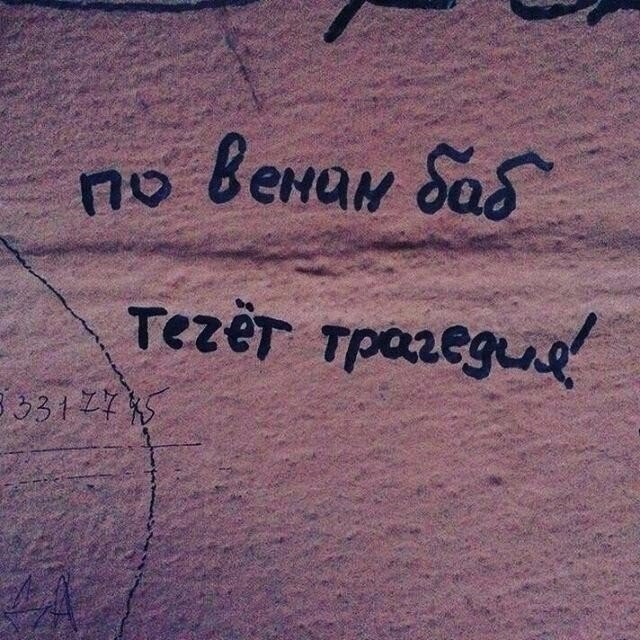 по венан баб
течёт трагедия!
3317745